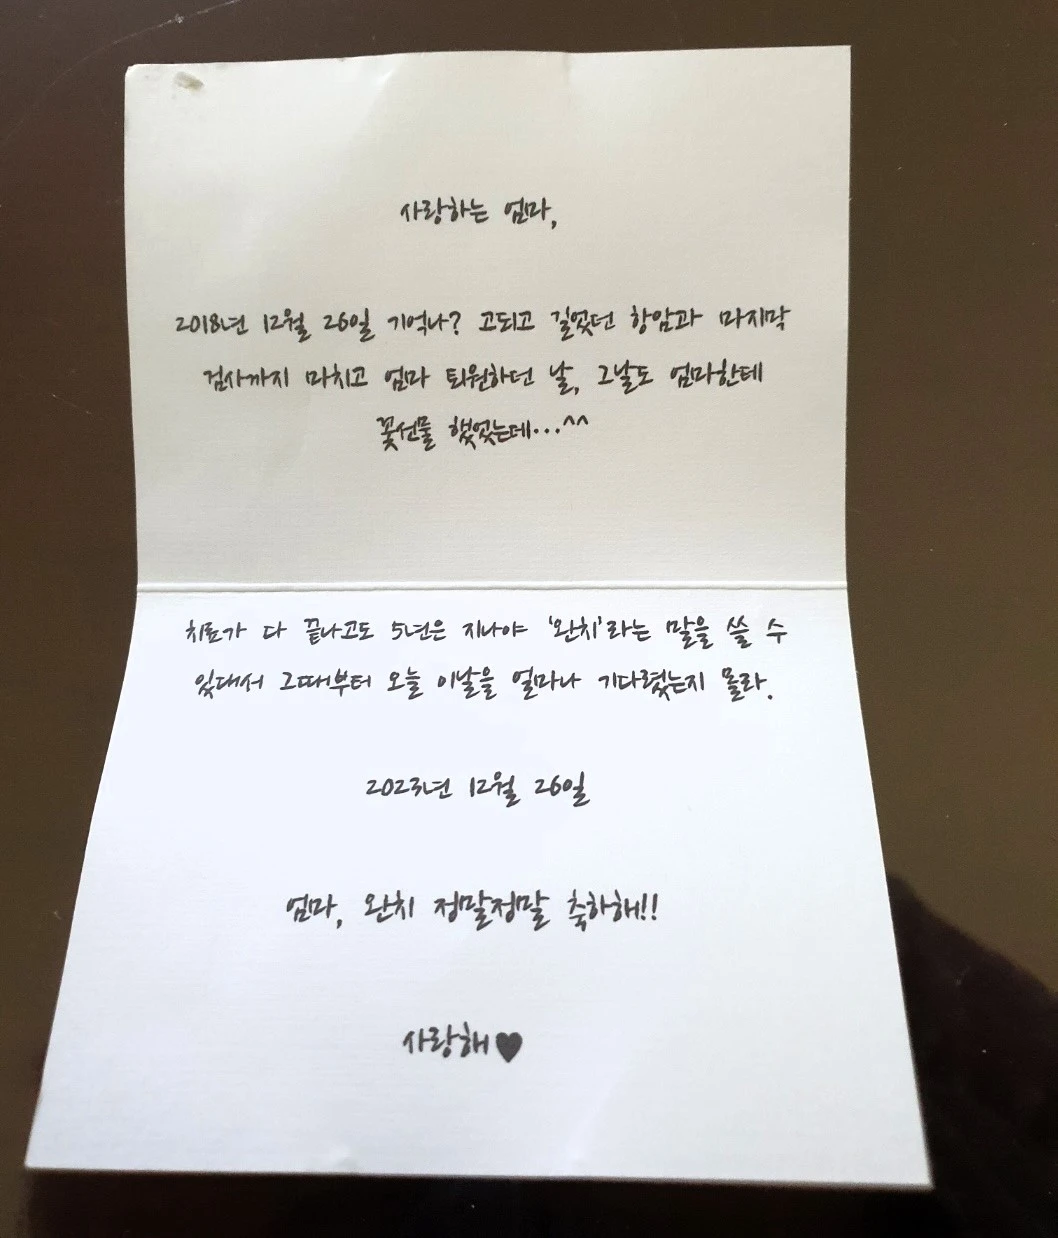 사랑하는 엄마,
2018년 12월 26일 기억나? 고되고 길었던 항암과 마지막
검사까지 마치고 엄마 퇴원하던 날, 그날도 엄마한테
꽃선물 했었는데...^^
치료가 다 끝나고도 5년은 지나야 '완치'라는 말을 쓸 수
있대서 그때부터 오늘 이날을 얼마나 기다렸는지 몰라.
2023년 12월 26일
엄마, 완치 정말정말 축하해!!
사랑해♥